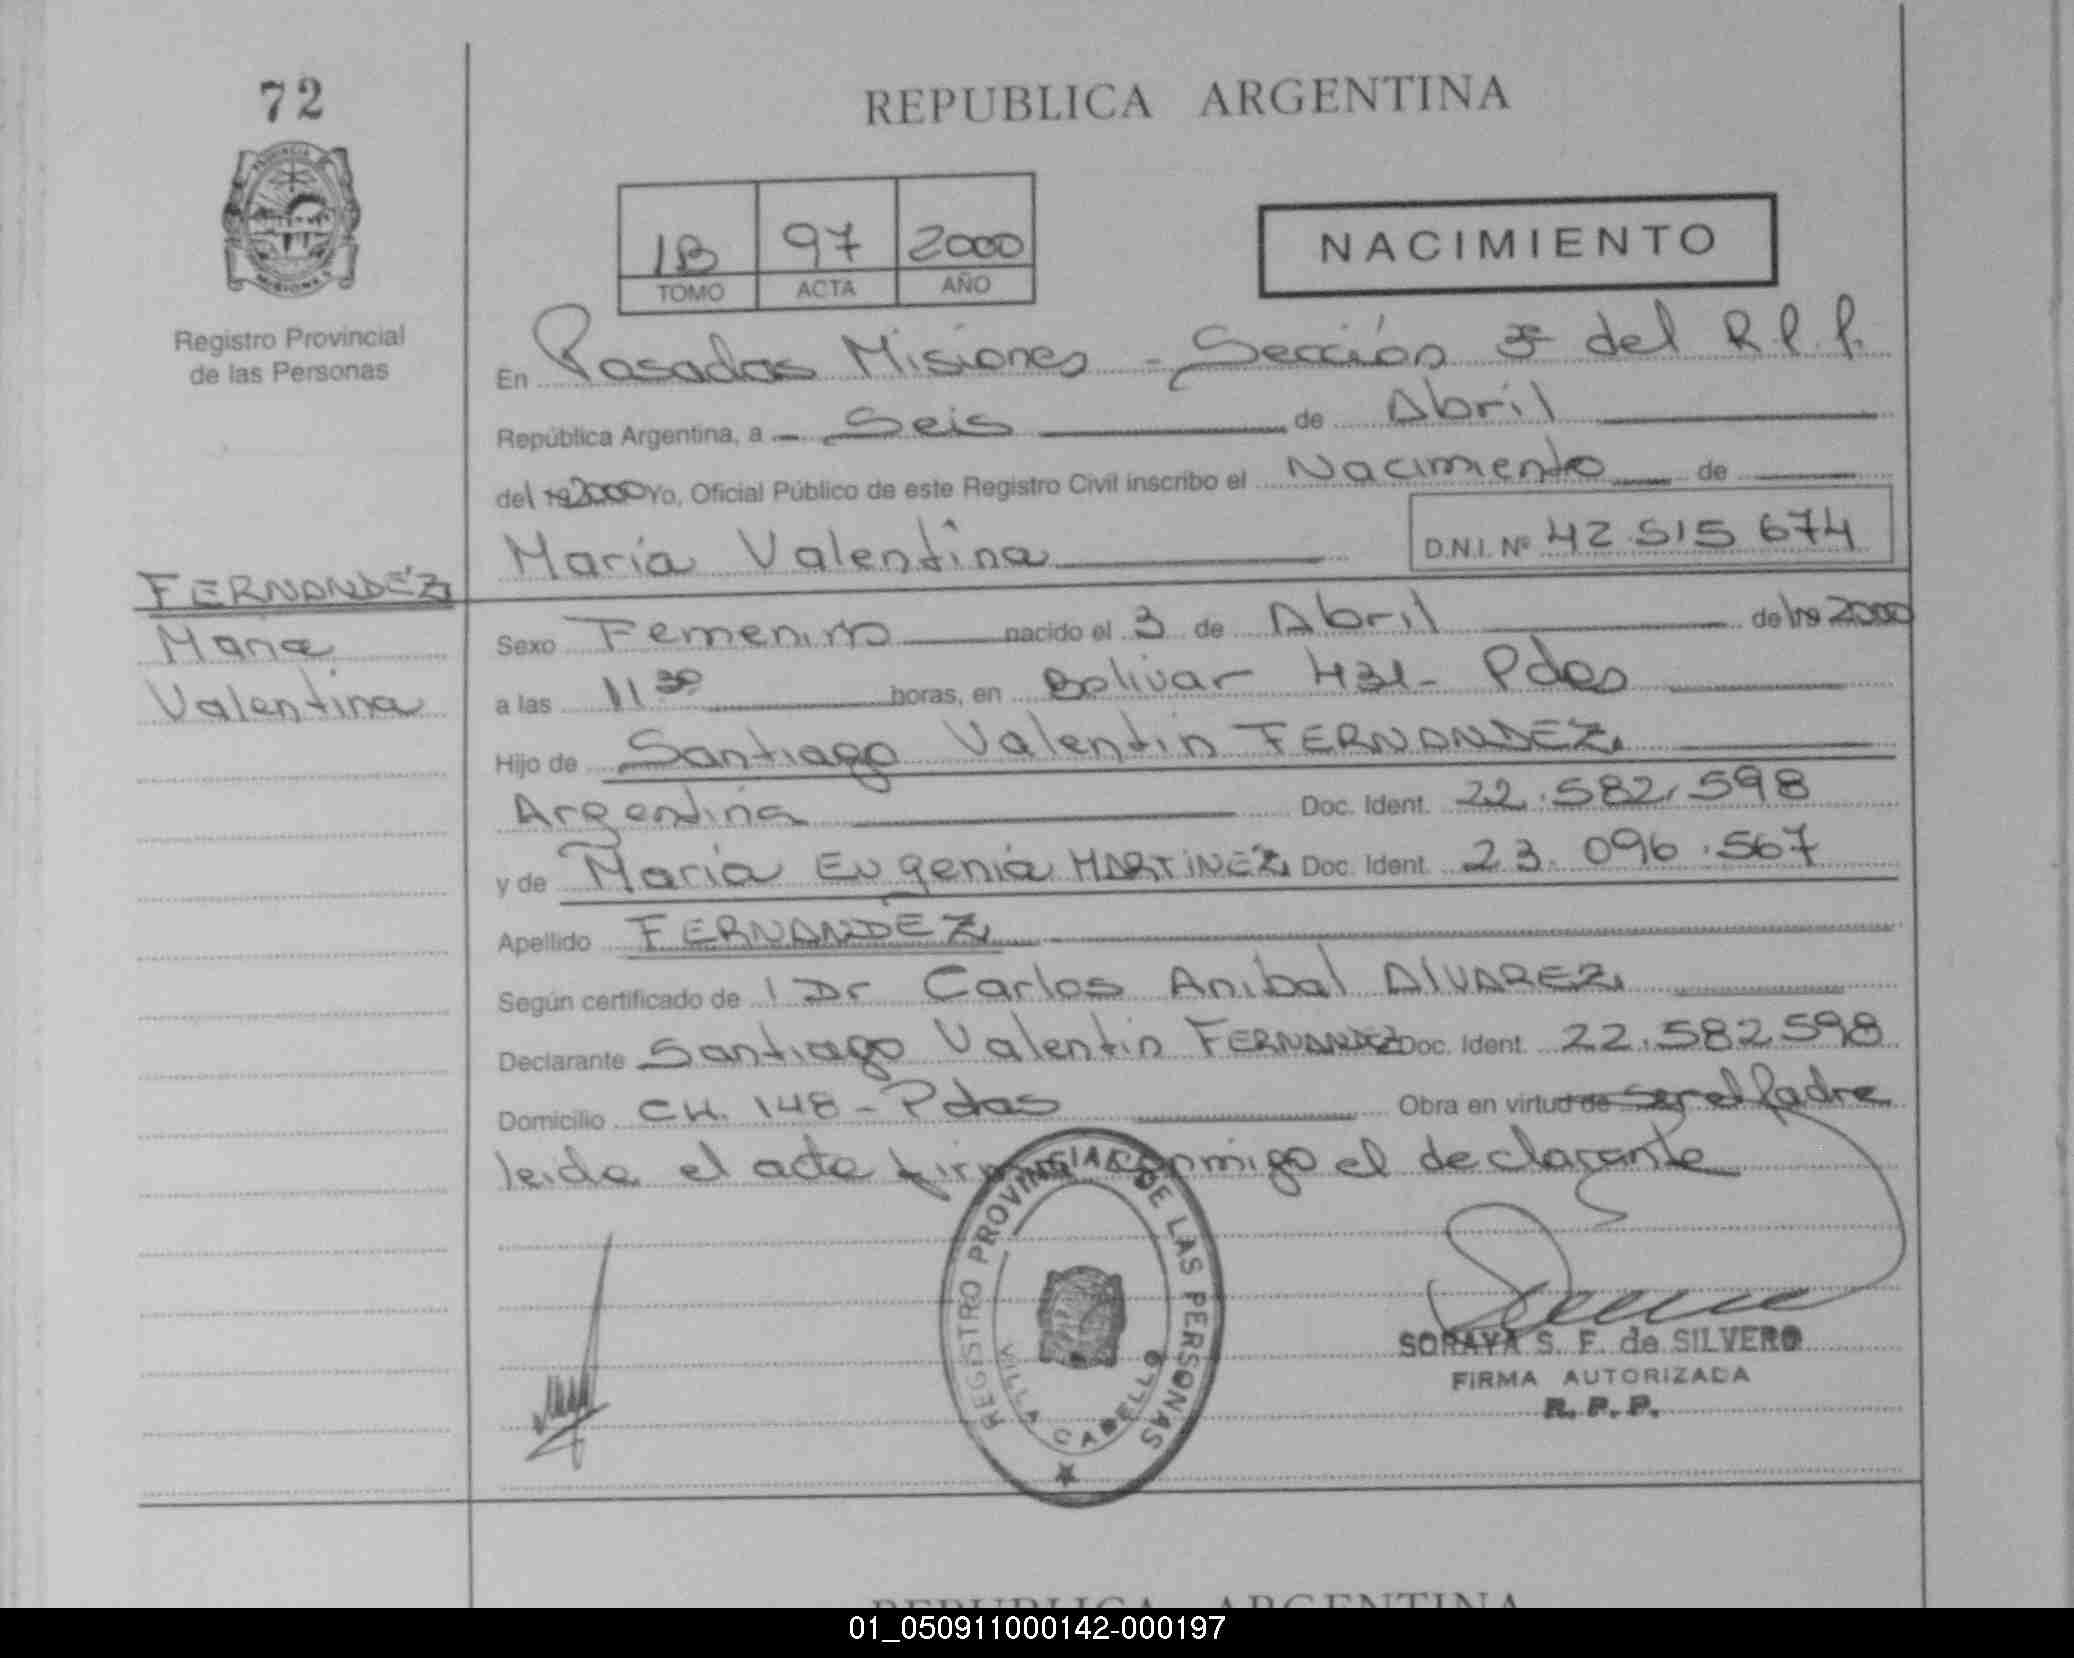 72
REPUBLICA ARGENTINA
1B 97 2000
TOMO ACTA AÑO
NACIMIENTO
Registro Provincial
de las Personas
En Posadas Misiones - Sección 3ª del R.P.P.
República Argentina, a Seis de Abril
del 19 2000 Yo, Oficial Público de este Registro Civil inscribo el Nacimiento de
María Valentina D.N.I. Nº 42.515 674
FERNANDEZ
Maria
Valentina
Sexo Femenino nacido el 3 de Abril de 19 2000
a las 11 30 horas, en Bolivar 431- Pdas
Hijo de Santiago Valentin FERNANDEZ
Argentina Doc. Ident. 22.582.598
y de María Eugenia MARTINEZ Doc. Ident. 23.096.567
Apellido FERNANDEZ
Según certificado de Dr Carlos Anibal ALVAREZ
Declarante Santiago Valentin FERNANDEZ Doc. Ident. 22.582.598
Domicilio CH. 148 - Pdas Obra en virtud de ser el Padre
leida el acta firma conmigo el declarante
REGISTRO PROVINCIAL DE LAS PERSONAS
VILLA CABELLO
SORAYA S. F. de SILVERO
FIRMA AUTORIZADA
R. P. P.
REPUBLICA ARGENTINA
01_050911000142-000197